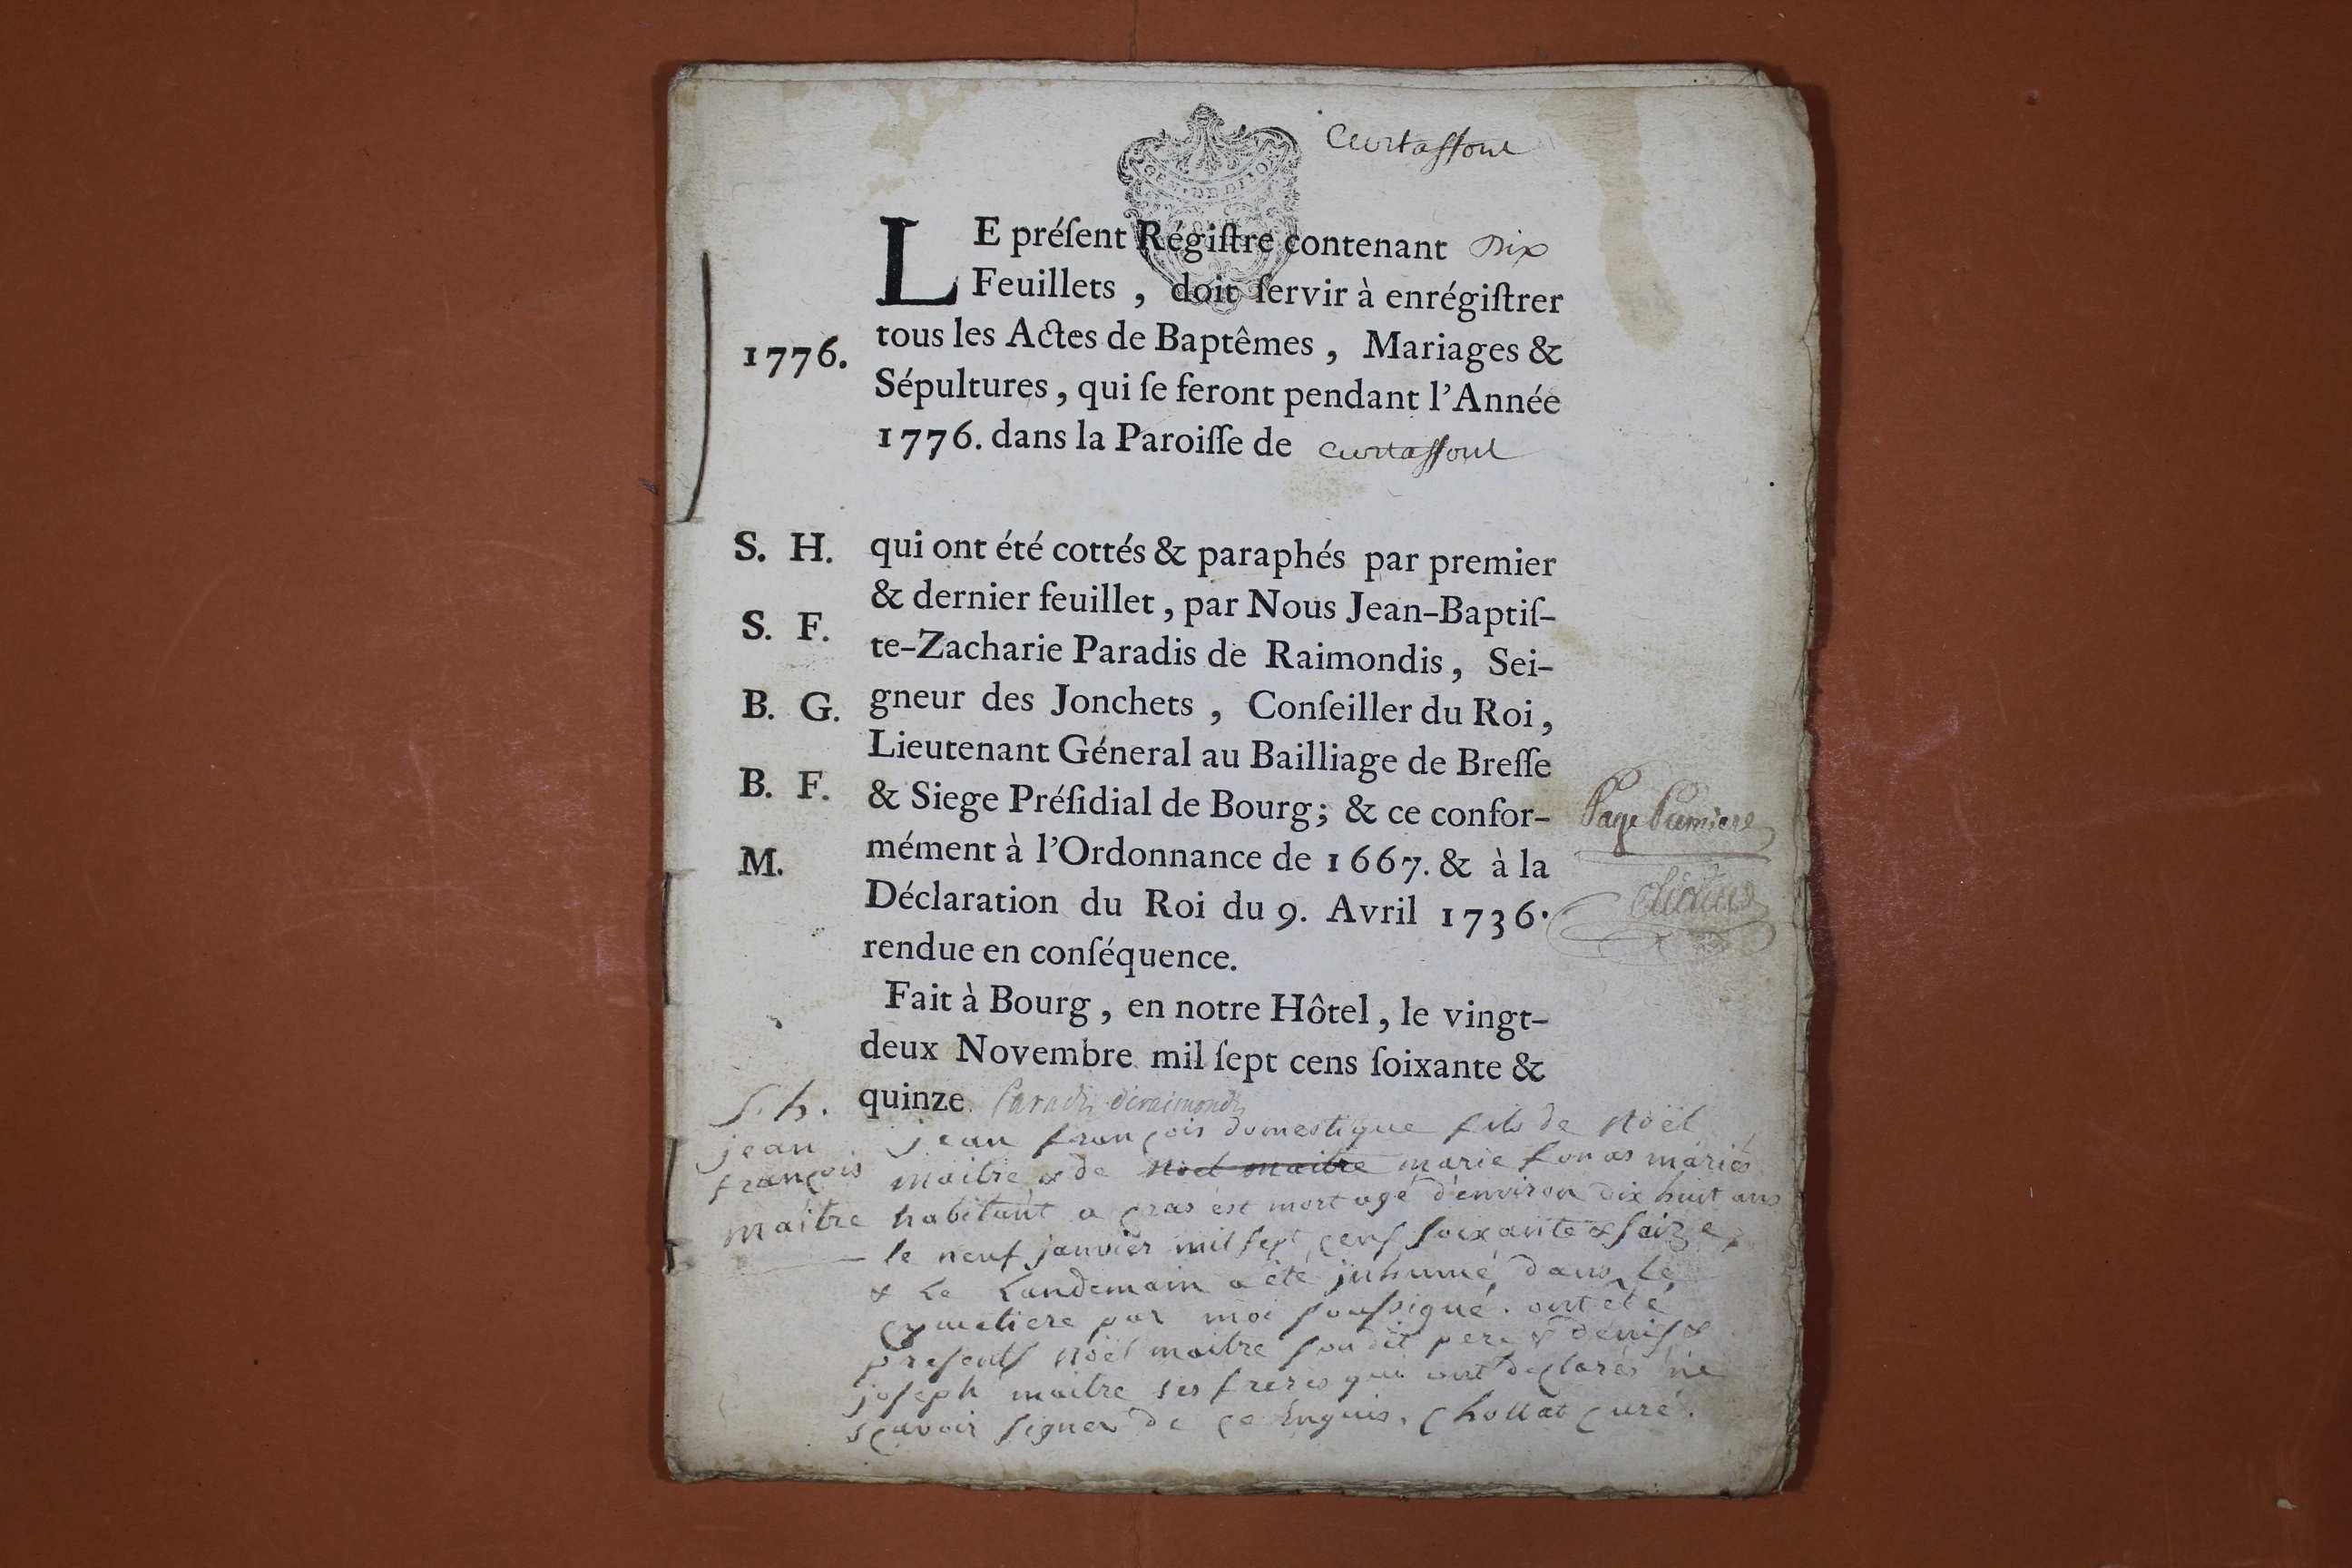 Curtafont
GEN. DE DIJON
LE préſent Régiſtre contenant Dix
Feuillets, doit ſervir à enrégiſtrer
tous les Actes de Baptêmes, Mariages &
1776.
Sépultures, qui ſe feront pendant l'Année
1776. dans la Paroiſſe de Curtafont
S. H.
qui ont été cottés & paraphés par premier
& dernier feuillet, par Nous Jean-Baptiſ-
S. F.
te-Zacharie Paradis de Raimondis, Sei-
B. G.
gneur des Jonchets, Conſeiller du Roi,
Lieutenant Géneral au Bailliage de Breſſe
B. F.
& Siege Préſidial de Bourg; & ce confor-
Page Premiere
M.
mément à l'Ordonnance de 1667. & à la
Déclaration du Roi du 9. Avril 1736.
rendue en conſéquence.
Fait à Bourg, en notre Hôtel, le vingt-
deux Novembre mil ſept cens ſoixante &
quinze Paradis deraimondis
S. h.
jean
françois
maitre
jean françois domestique fils de Noël
maitre & de Noel maitre marie fonas mariés
habitant a cras est mort agé d'environ dix huit ans
le neuf janvier mil sept cens soixante & saize,
& le landemain a été juhumé dans le
cymetiere par moi soussigné. ont été
presents Noël maitre son dit pere & denis &
joseph maitre ses freres qui ont declarés ne
sçavoir signer de ce enquis. Chollat curé.